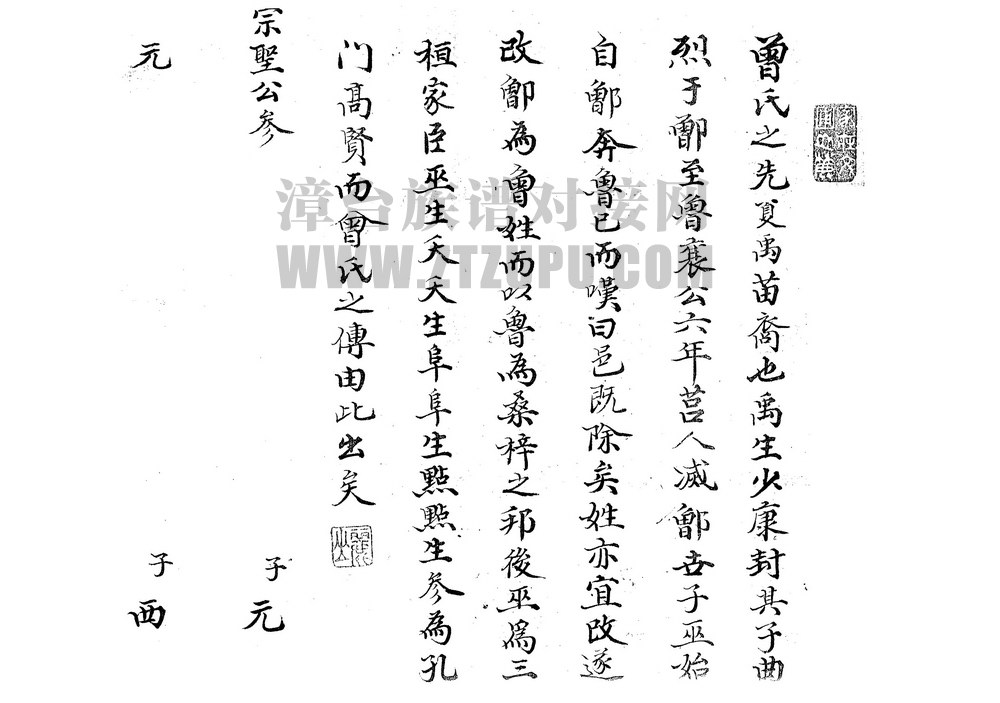 曾氏之先夏禹苗裔也禹生少康封其子曲
烈于鄫至魯襄公六年莒人滅鄫世子巫始
自鄫奔魯已而嘆曰邑既除矣姓亦宜改遂
改鄫為曾姓而以魯為桑梓之邦後巫爲三
桓家臣巫生夭夭生阜阜生點點生參為孔
门高賢而曾氏之傳由此出矣
宗聖公参
子元
元
子西
漳台族谱对接网
WWW.ZTZUPU.COM